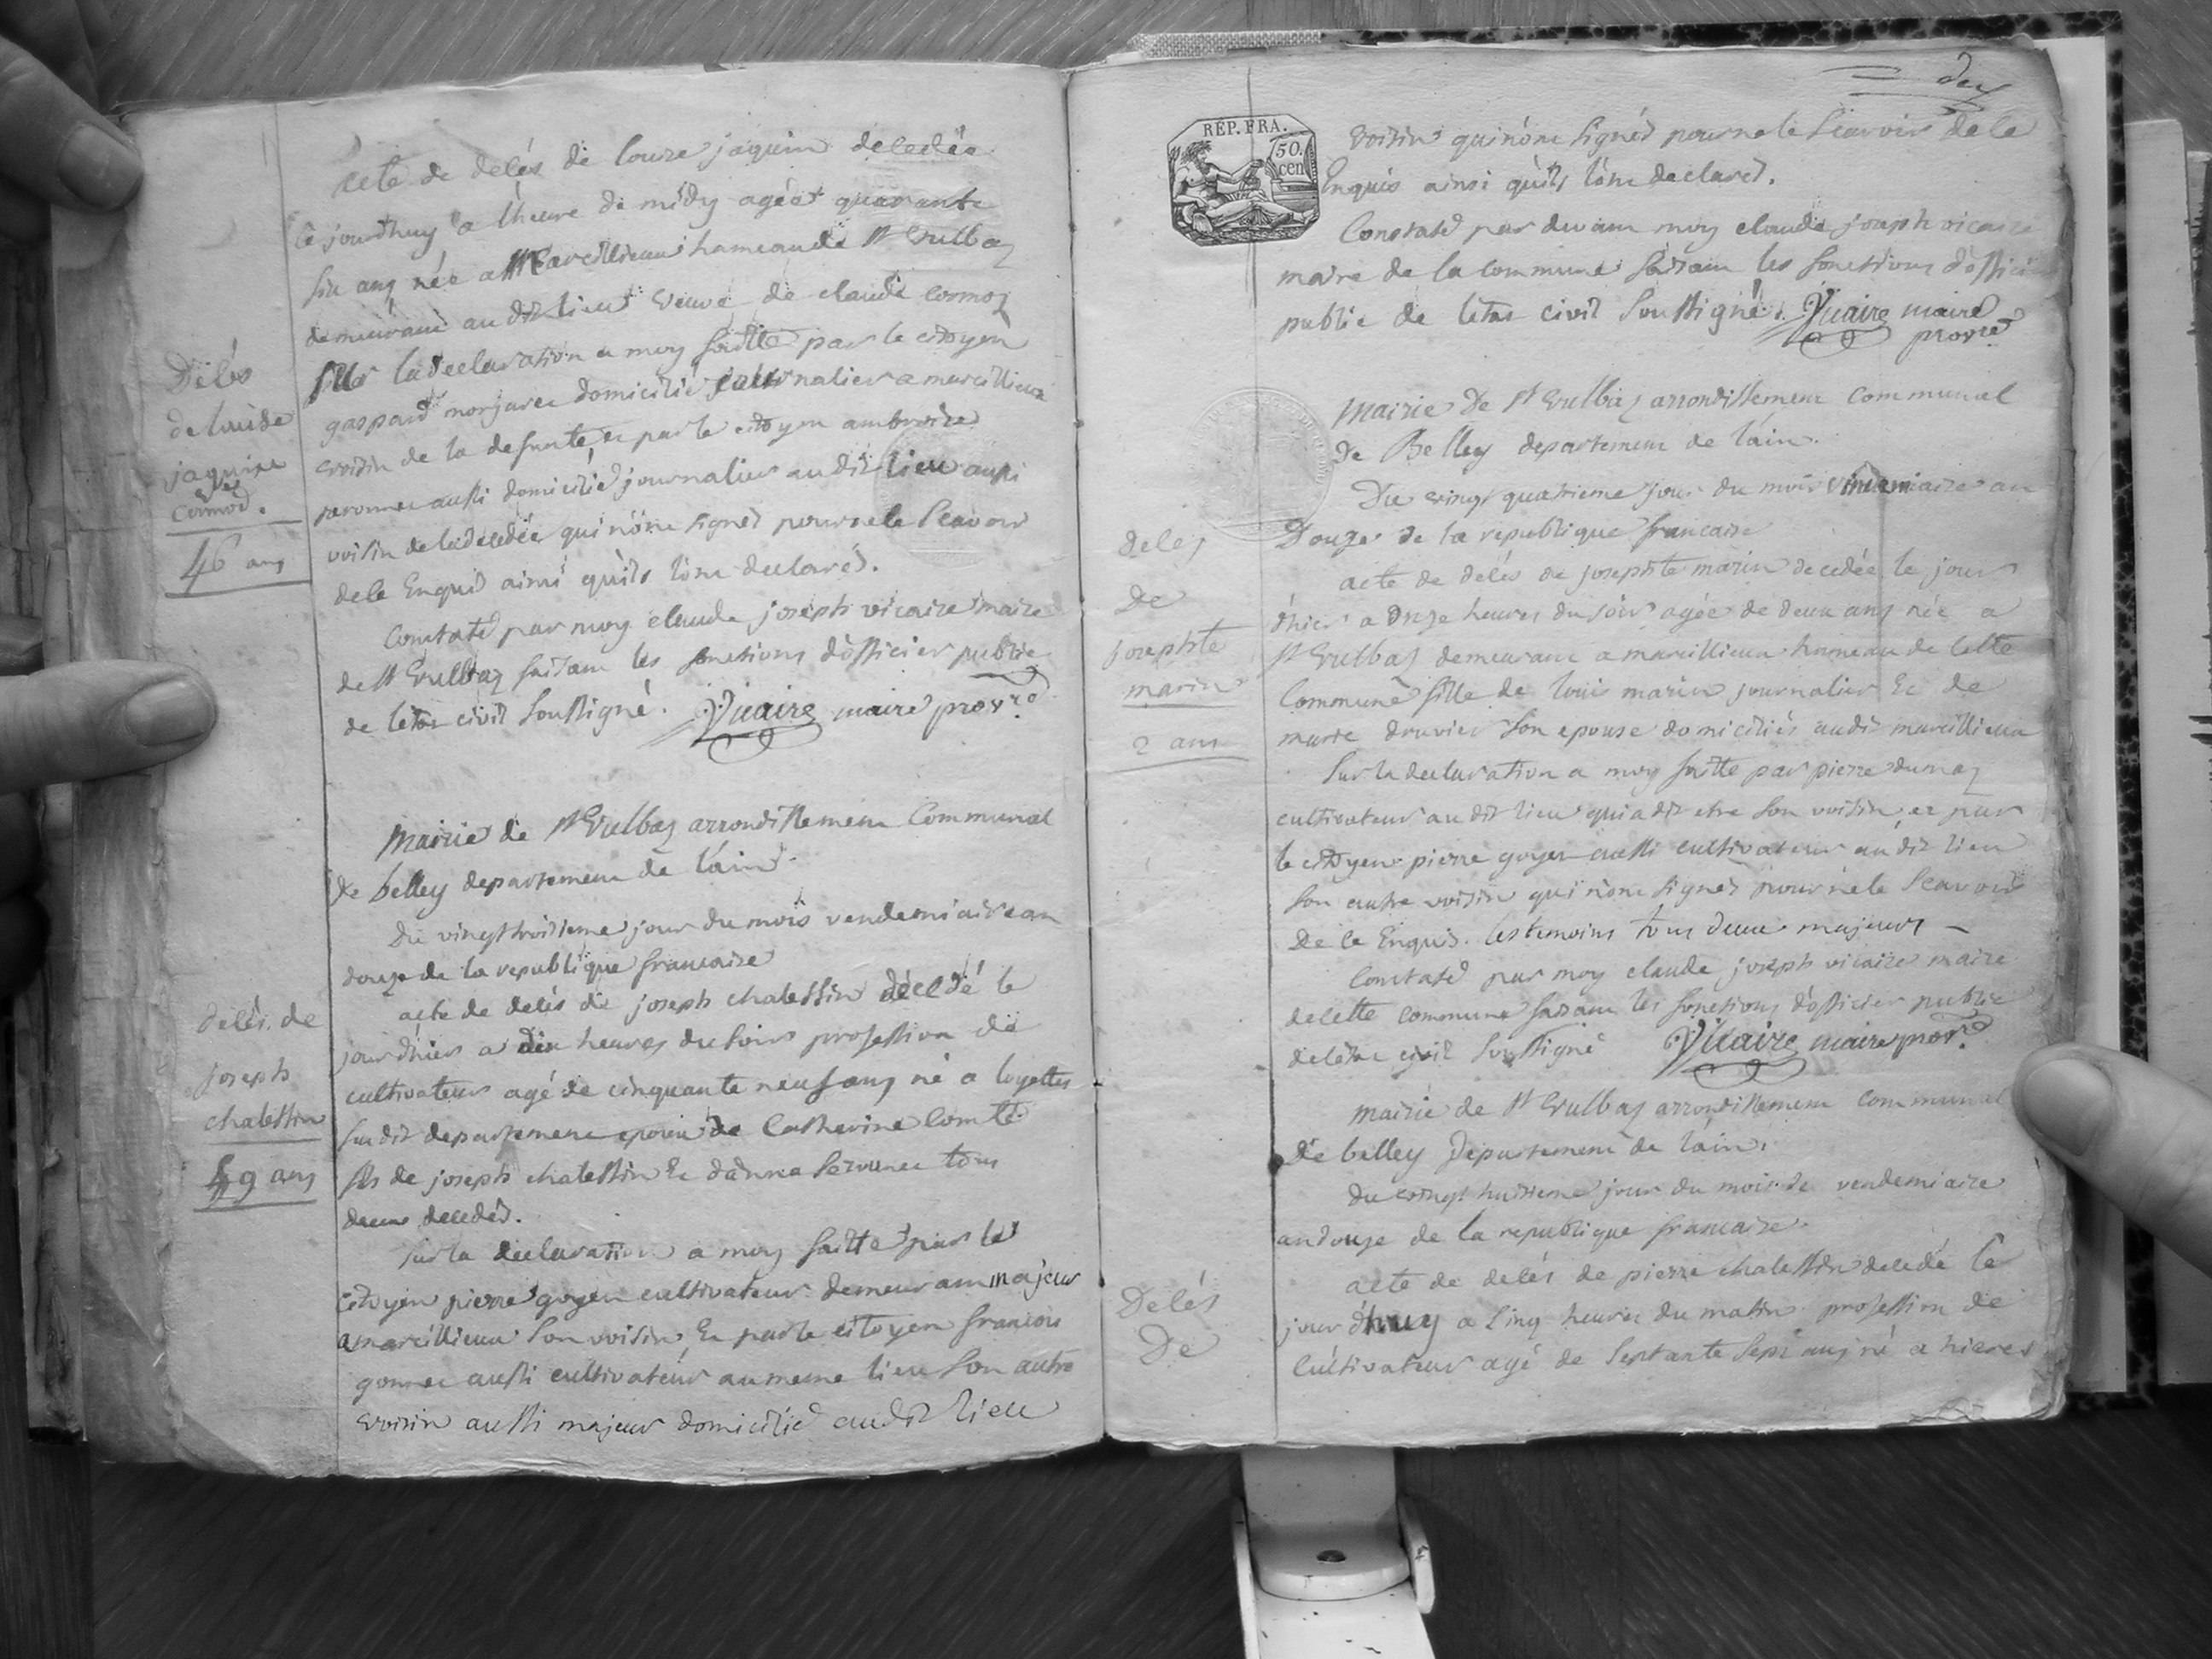 acte de delés de louise jaquin decedée
ce jourdhuy a lheure de midy ageé quarante
six ans née a Marcillieux hameau de St Vulbaz
demeurant au dit lieu veuve de claude cormoz
sur la declaration a moy faitte par le citoyen
gaspard domicilié journalier a marcillieux
voisin de la defunte, et par le citoyen ambroise
peronnet aussi domicilié journalier au dit lieu aussi
voisin de la decedée qui nònt signés pour ne le scavoir
de le Enquis ainsi quìls lònt declarés.
Constaté par moy claude joseph vicaire maire
de St Vulbaz faisant les fonctions dòfficier public
de létat civil soussigné. Vicaire maire provre
Delés
de louise
jaquin
ve
cormoz.
46 ans
Mairie de St Vulbaz arrondissement Communal
De belley departement de làin.
Du vingt troisieme jour du mois vendemiaire an
douze de la republique francaise
acte de delés de joseph chalessin décedé le
jour dhier a dix heures du soir profession de
cultivateur agé de cinquante neuf ans né a loyettes
susdit departement epoux de Catherine Comte
fils de joseph chalessin Et dànna tous
deux decedés.
sur la declaration a moy faitte par le
Citoyen pierre goyet cultivateur demeurant majeur
a marcillieux son voisin, Et par le citoyen francois
gonnet aussi cultivateur au meme lieu son autre
voisin aussi majeur domicilié au dit lieu
delés de
joseph
chalessin
59 ans
deux
RÉP. FRA.
50.
cen
voisin qui nònt signés pour ne le scavoir de le
Enquis ainsi quìls lònt declarés.
Constaté par devant moy claude joseph vicaire
maire de la commune faisant les fonctions dòfficier
public de létat civil soussigné. Vicaire maire
provre
Mairie De St Vulbaz arrondissement Communal
De Belley departement de làin.
Du vingt quatrieme jour du mois vendemiaire an
Douze de la republique francaise
acte de delés de josephte marin decedée le jour
dhier a onze heures du soir agée de deux ans née a
St Vulbaz demeurant a marcillieux hameau de cette
Commune fille de louis marin journalier Et de
marie druvier son epouse domiciliés au dit marcillieux
sur la declaration a moy faitte par pierre dumaz
cultivateur au dit lieu qui a dit etre son voisin et par
le citoyen pierre goyet aussi cultivateur au dit lieu
son autre voisin qui nònt signés pour ne le scavoir
De le Enquis. les temoins tous deux majeurs –
Constaté par moy claude joseph vicaire maire
de cette commune faisant les fonctions dòfficier public
de létat civil soussigné Vicaire maire provre
delés
De
josephte
marin
2 ans
mairie de St Vulbaz arrondissement communal
De belley Departement de làin.
du vingt huitieme jour du mois de vendemiaire
an douze de la republique francaise.
acte de delés de pierre chalessin decedé le
jour dhuy a cinq heures du matin profession de
Cultivateur agé de septante sept ans né a hieres
Delés
De